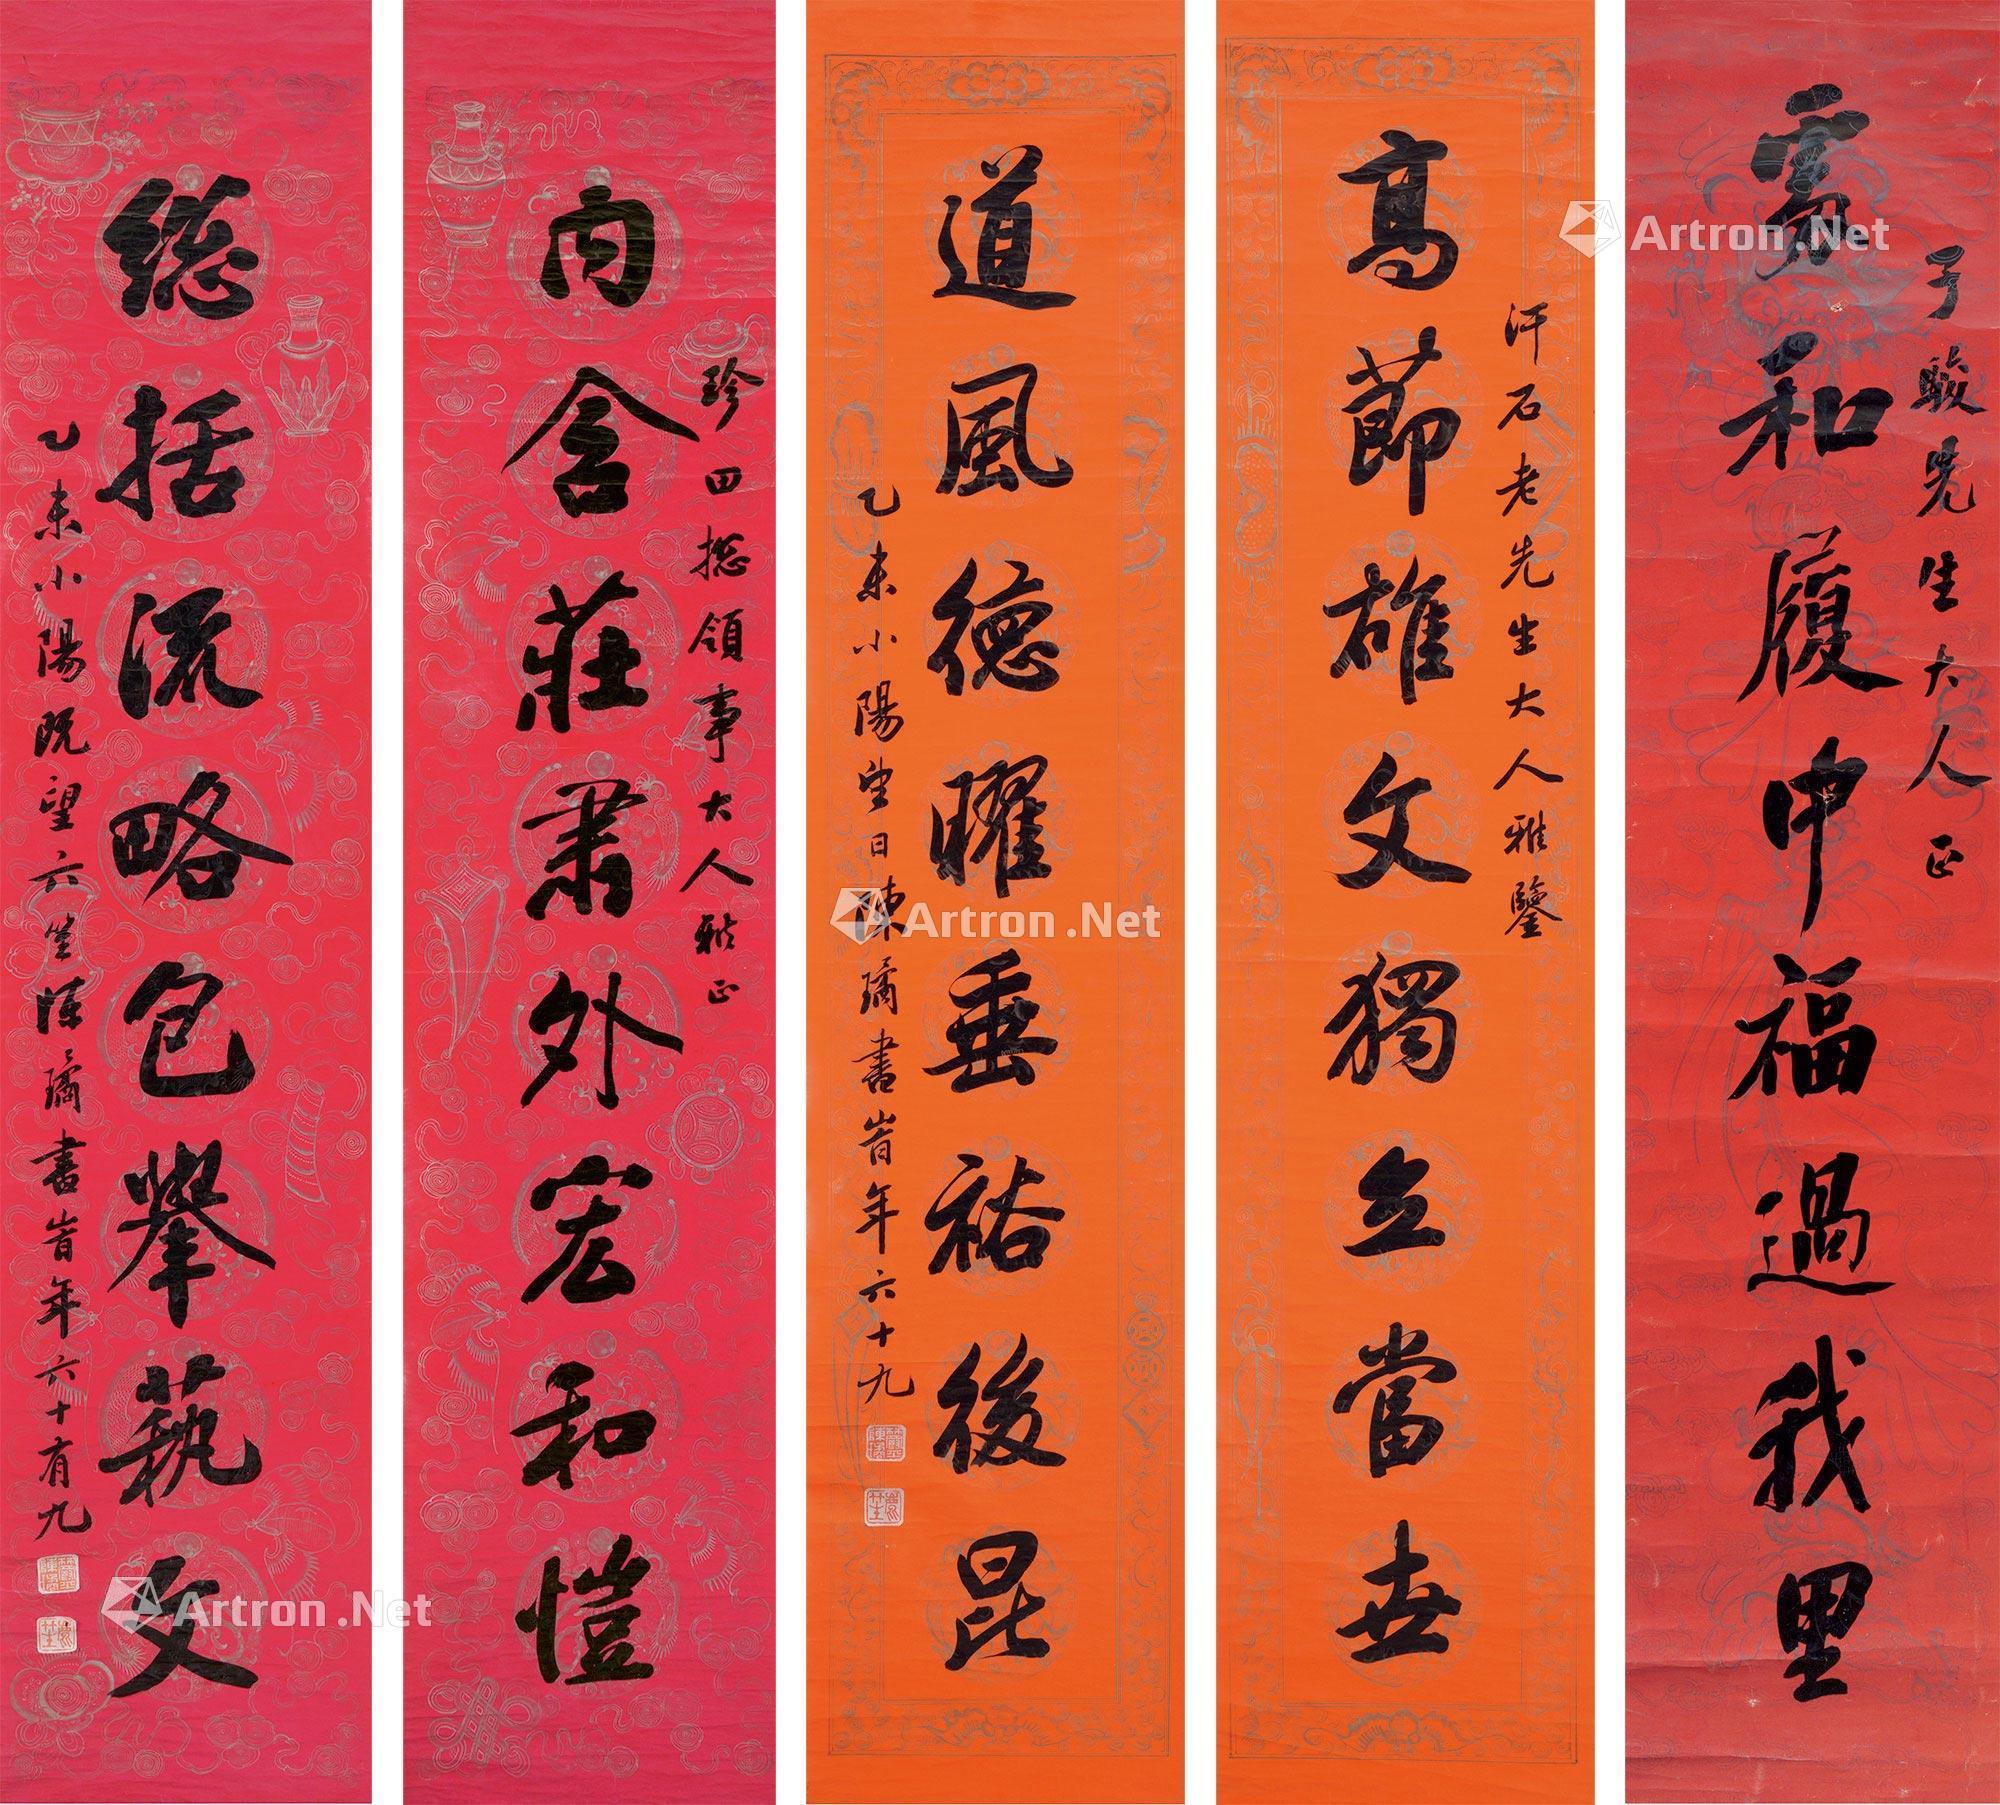 子駿先生大人正
寬和履中福過我里
汗石老先生大人雅鑒
高節雄文獨立當世
道風德曜垂裕後昆
乙未小陽望日陳璚書旹年六十九
珍田揔領事大人雅正
內含莊肅外宏和愷
總括流略包舉藝文
乙未小陽既望六笙陳璚書旹年六十有九
Artron.Net
Artron.Net
Artron.Net